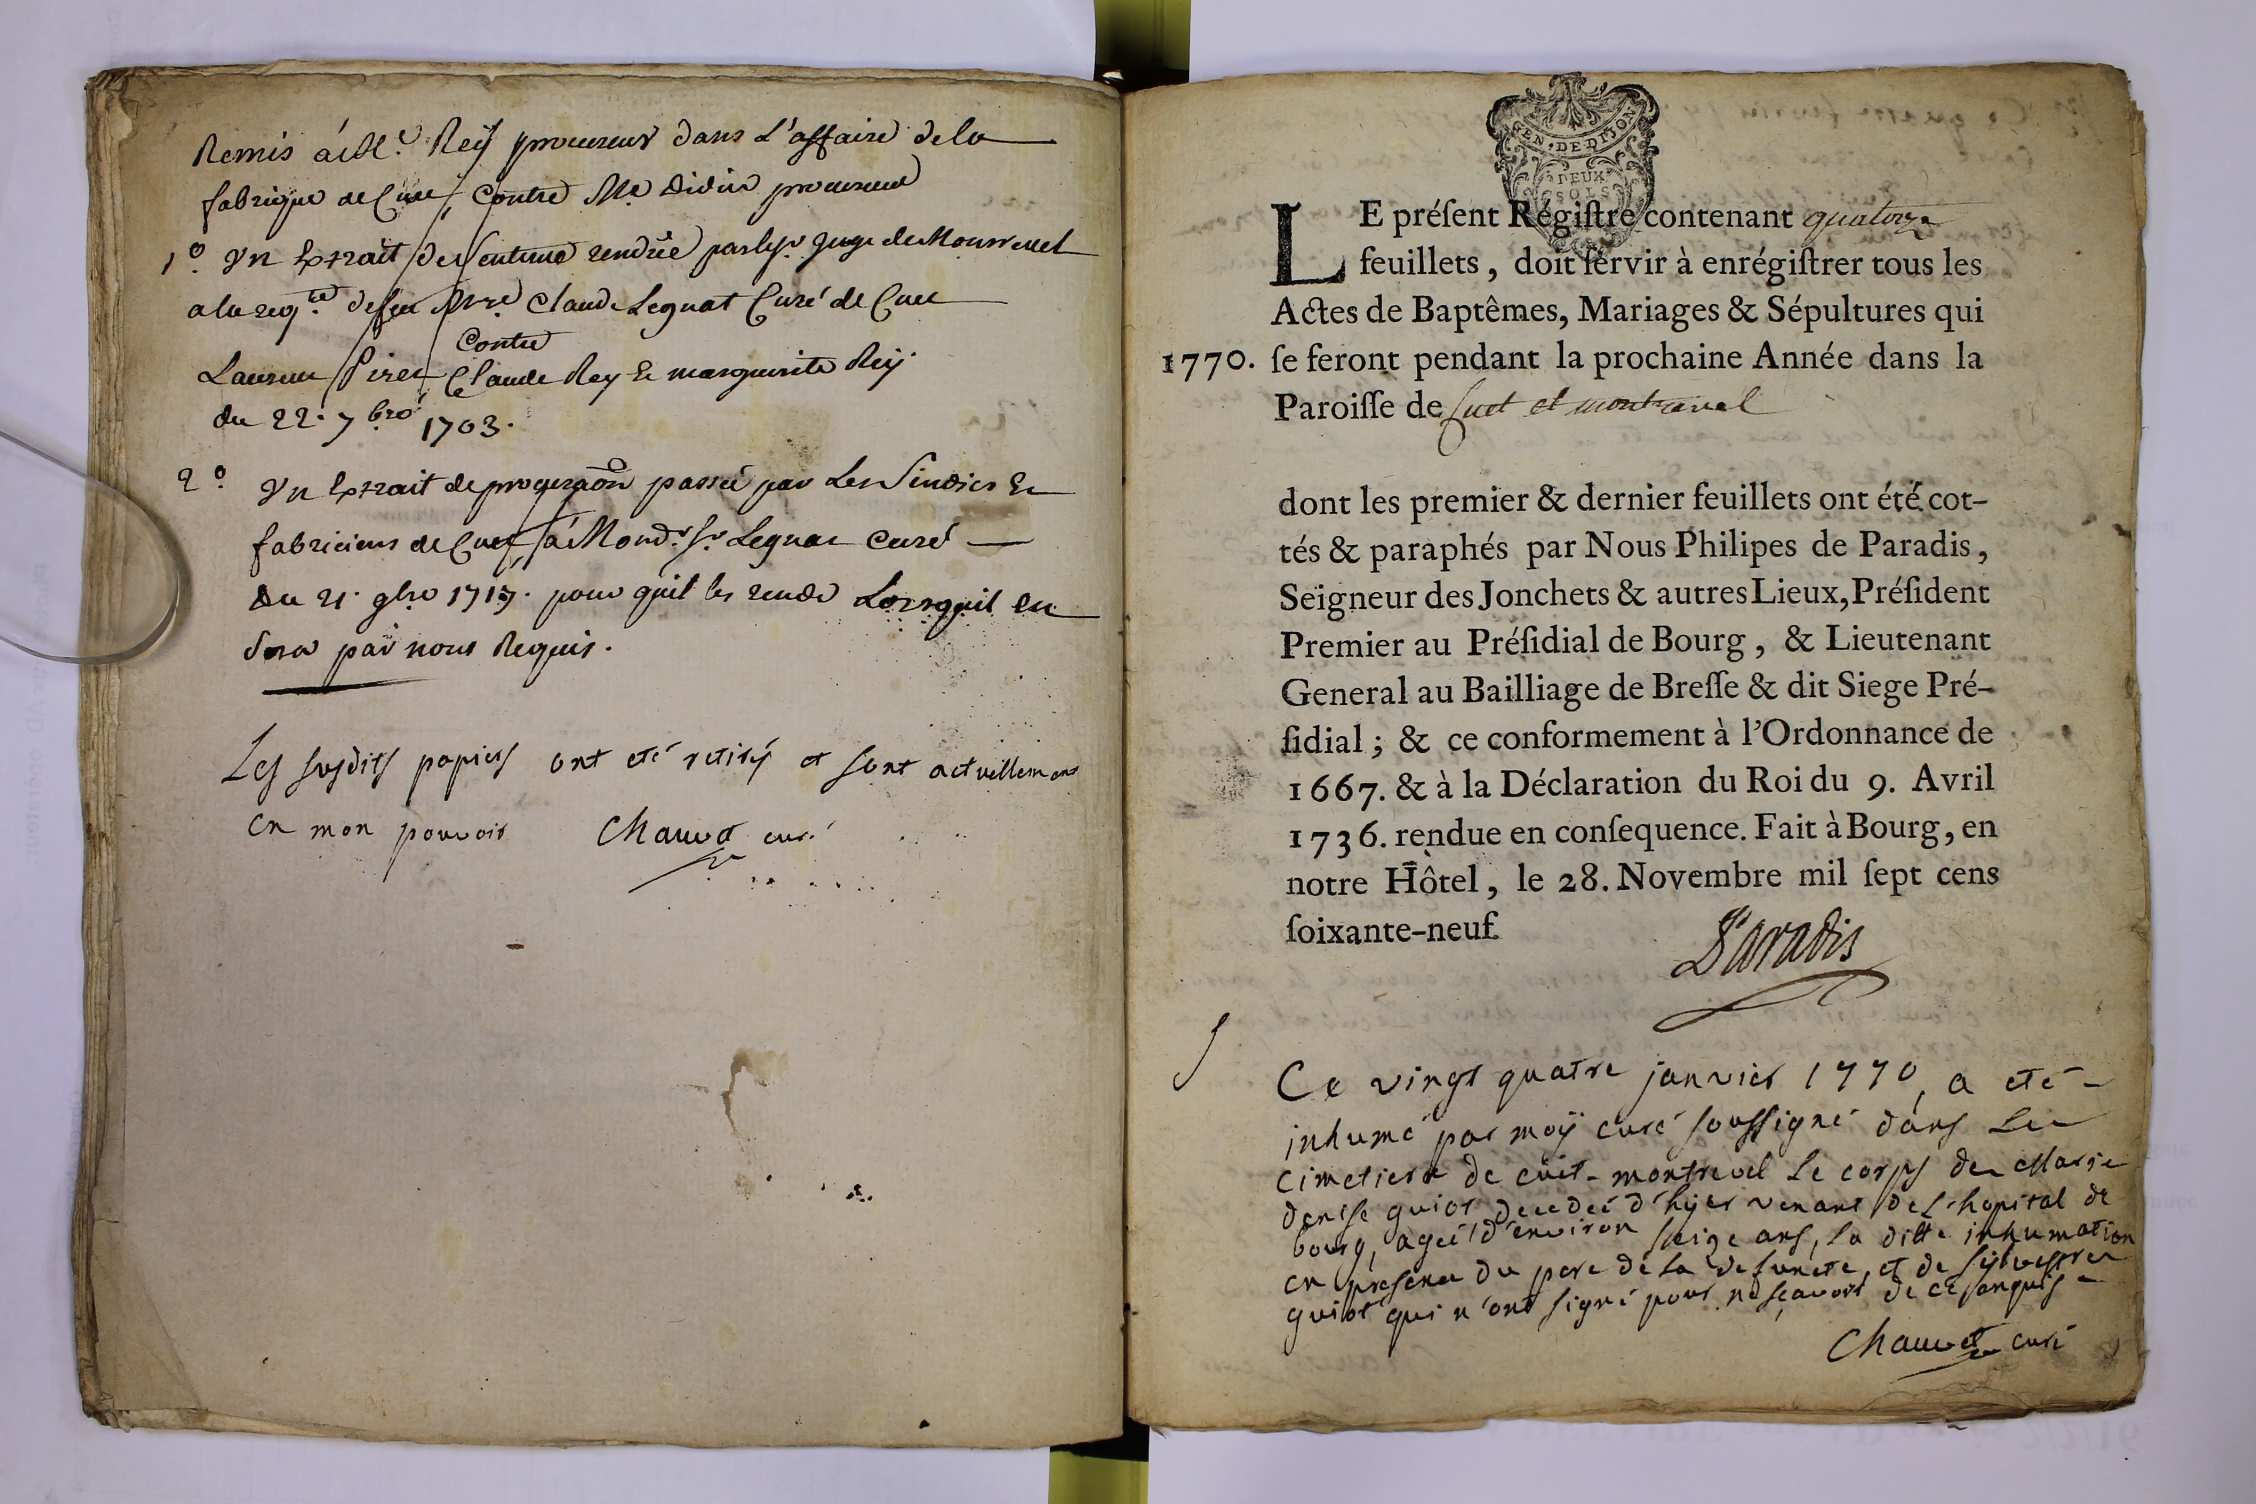 Remis à Me. Reÿ procureur dans L'affaire de la
fabrique de Cuet contre Me Didier procureur
1o. Vn Extrait de Sentence rendüe par le sr. juge de Monrevel
a la reqte. de feu Mre Claude Legnat Curé de Cuet
contre
Laurent Piret Claude Rey Et marguerite Reÿ
du 22. 7bre 1703.
2o Vn Extrait de procuraõn passée par Les Sindics Et
fabriciens de Cuet à Mond. Sr. Legnat curé
Du 21. 9bre 1717. pour qu'il les rende Lorsquil En
Sera par nous Requis.
Les susdits papiers ont eté retirés et sont actuellement
en mon pouvoir Chauvet curé
GEN. DE DIJON
DEUX
SOLS
LE préſent Régiſtre contenant quatorze
feuillets, doit ſervir à enrégiſtrer tous les
Actes de Baptêmes, Mariages & Sépultures qui
1770. ſe feront pendant la prochaine Année dans la
Paroiſſe de Cuet et montrevel
dont les premier & dernier feuillets ont été cot-
tés & paraphés par Nous Philipes de Paradis,
Seigneur des Jonchets & autres Lieux, Préſident
Premier au Préſidial de Bourg, & Lieutenant
General au Bailliage de Breſſe & dit Siege Pré-
ſidial; & ce conformement à l'Ordonnance de
1667. & à la Déclaration du Roi du 9. Avril
1736. rendue en conſequence. Fait à Bourg, en
notre Hôtel, le 28. Novembre mil ſept cens
ſoixante-neuf
Paradis
S
Ce vingt quatre janvier 1770, a eté
inhumé par moÿ curé soussigné dans Le
cimetiere de cüet-montrevel Le corps de Marie
denise guiot decedeé d'hÿer venant de L'hopital de
bourg, ageé d'environ seize ans, la ditte inhumation
en presence du pere de la defuncte, et de silvestre
guiot qui n'ont signé pour ne sçavoir de ce enquis
Chauvet curé